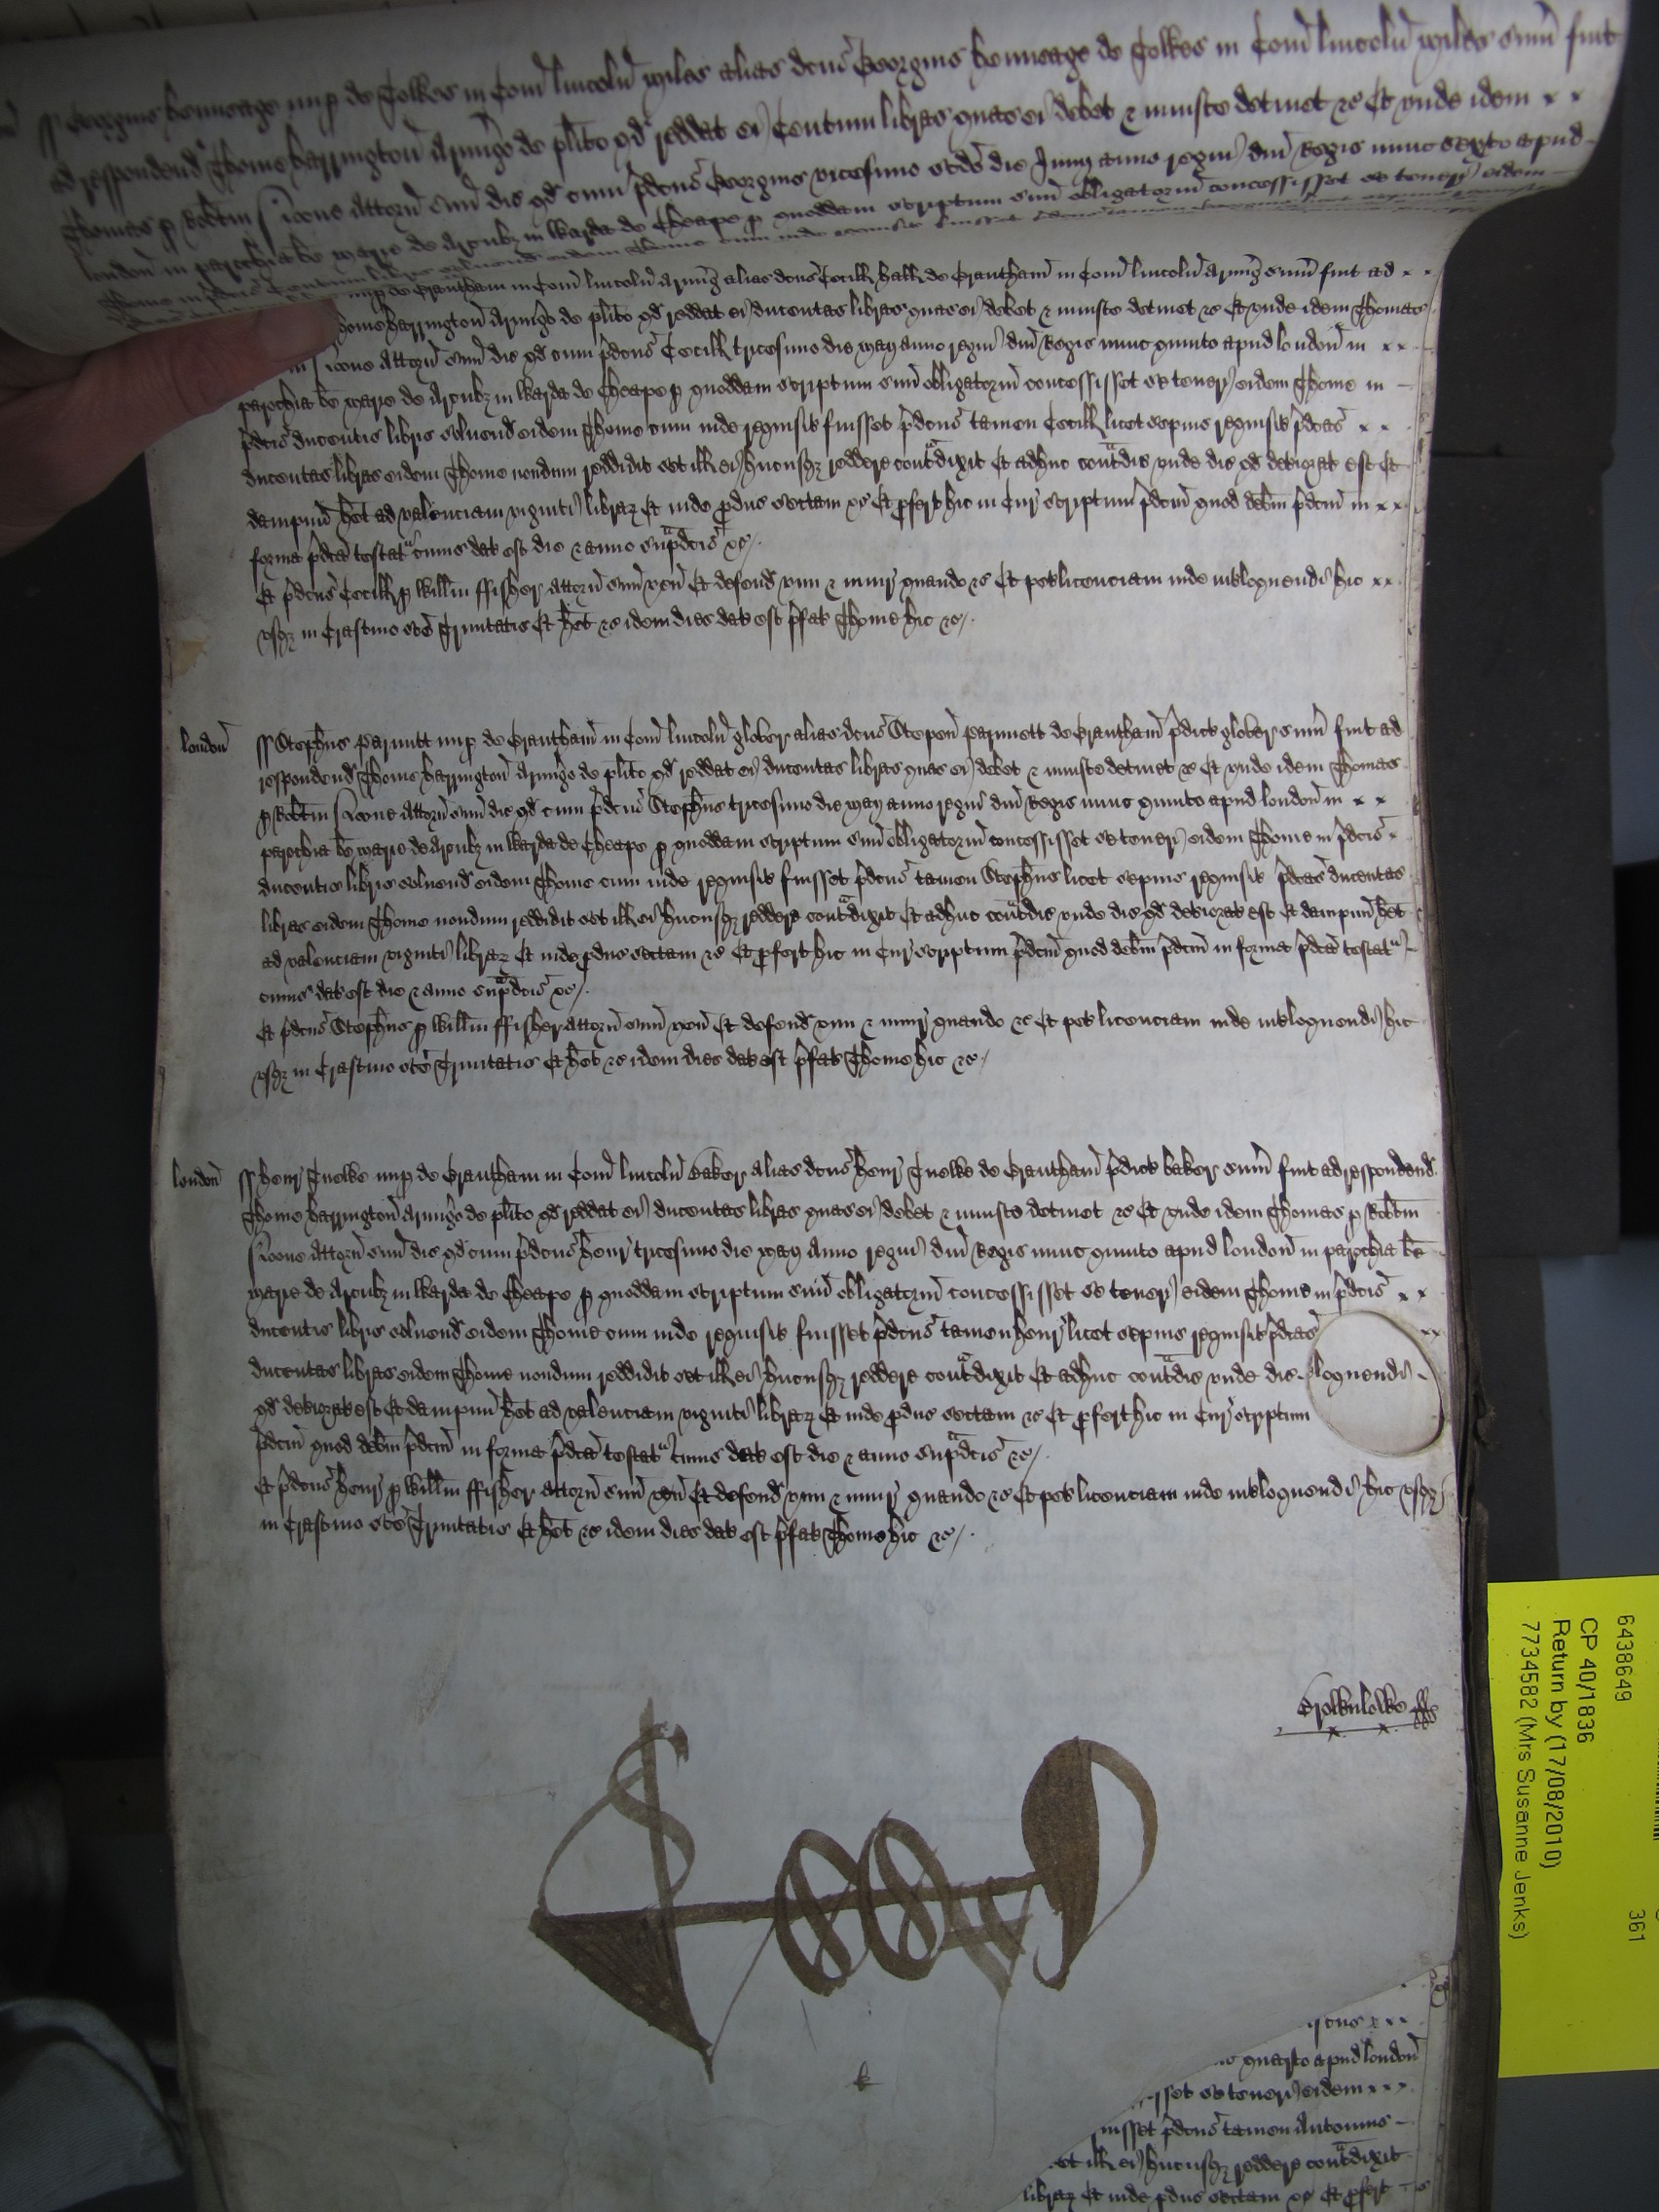 ss Georgius henneage nup de Tolkes in Com̄ lincoln̄ miles alias dc̄us Georgius henneage de Tolkes in Com̄ lincoln̄ miles sum̄ fuit
ad respondend̄ Thome barrington̄ Armiḡo de pl̄ito qd̄ reddat ei Centum libras quas ei debet & iniuste detinet &c Et unde idem
Thomas p Rob̄tm attorn̄ suū dic̄ qd̄ cum p̄dc̄us Georgius vicesimo die Junij anno regni dn̄i Regis nunc sexto apud
london̄ in parochia b̄e marie de Arcubȝ in Warda de Cheape p quoddam scriptum suū obligatoriū concessisset se teneri eidem
nup de Grantham in Com̄ lincoln̄ Armiḡ alias dc̄us Cecill hall de Grantham̄ in Com̄ lincoln̄ Armiḡ sum̄ fuit ad
Thome barrington̄ Armiḡo de pl̄ito qd̄ reddat ei ducentas libras quas ei debet & iniuste detinet &c Et unde idem Thomas
attorn̄ suū dic̄ qd̄ cum p̄dc̄us Cecill tricesimo die maij anno regni dn̄i Regis nunc quinto apud london̄ in
parochia b̄e marie de Arcubȝ in Warda de Cheape p quoddam scriptum suū obligatoriū concessisset se teneri eidem Thome in
p̄dc̄is ducentis libris solvend̄ eidem Thome cum inde requisit̄ fuisset p̄dc̄us tamen Cecill licet sepius requisit̄ p̄dc̄as
ducentas libras eidem Thome nondum reddidit set ill̄ ei hucusqȝ reddere contᵃdixit Et adhuc contᵃdic̄ unde dic̄ qd̄ deteriorat̄ est Et
dampnū h̄et ad valenciam viginti librarȝ Et inde pduc̄ sectam &c Et pfert hic in Cur̄ scriptum p̄dc̄m quod deb̄m p̄dc̄m in
forma p̄dc̄a testatʳ cuius dat̄ est die & anno supᵃdc̄is &c
Et p̄dc̄us Cecill p Will̄m ffisher attorn̄ suū ven̄ Et defend̄ vim & iniur̄ quando &c Et pet̄ licenciam inde int̄loquendi hic
usqȝ in Crastino sc̄e Trinitatis Et h̄et &c idem dies dat̄ est p̄fat̄ Thome hic &c
london̄
ss Steph̄us parmitt nup de Grantham̄ in Com̄ lincoln̄ glover alias dc̄us Stepen̄ parmett de Grantham̄ p̄dict̄ glover sum̄ fuit ad
respondend̄ Thome barrington̄ Armiḡo de pl̄ito qd̄ reddat ei ducentas libras quas ei debet & iniuste detinet &c Et unde idem Thomas
p Rob̄tm attorn̄ suū dic̄ qd̄ cum p̄dc̄us Steph̄us tricesimo die maij anno regni dn̄i Regis nunc quinto apud london̄ in
parochia b̄e marie de Arcubȝ in Warda de Cheape p quoddam scriptum suū obligatoriū concessisset se teneri eidem Thome in p̄dc̄is
ducentis libris solvend̄ eidem Thome cum inde requisit̄ fuisset p̄dc̄us tamen Steph̄us licet sepius requisit̄ p̄dc̄as ducentas
libras eidem Thome nondum reddidit set ill̄ ei hucusqȝ reddere contᵃdixit Et adhuc contᵃdic̄ unde dic̄ qd̄ deteriorat̄ est Et dampnū h̄et
ad valenciam viginti librarȝ Et inde pduc̄ sectam &c Et pfert hic in Cur̄ scriptum p̄dc̄m quod deb̄m p̄dc̄m in forma p̄dc̄a testatʳ
cuius dat̄ est die & anno supᵃdc̄is &c
Et p̄dc̄us Steph̄us p Will̄m ffisher attorn̄ suū ven̄ Et defend̄ vim & iniur̄ quando &c Et pet̄ licenciam inde int̄loquendi hic
usqȝ in Crastino sc̄e Trinitatis Et h̄et &c idem dies dat̄ est p̄fat̄ Thome hic &c
london̄
ss henr̄ Cuelke nup de Grantham in Com̄ lincoln̄ baker alias dc̄us henr̄ Cuelke de Grantham̄ p̄dict̄ baker sum̄ fuit ad respondend̄
Thome barrington̄ Armiḡo de pl̄ito qd̄ reddat ei ducentas libras quas ei debet & iniuste detinet &c Et unde idem Thomas p Rob̄tm
attorn̄ suū dic̄ qd̄ cum p̄dc̄us henr̄ tricesimo die maij anno regni dn̄i Regis nunc quinto apud london̄ in parochia b̄e
marie de Arcubȝ in Warda de Cheape p quoddam scriptum suū obligatoriū concessisset se teneri eidem Thome in p̄dc̄is
ducentis libris solvend̄ eidem Thome cum inde requisit̄ fuisset p̄dc̄us tamen henr̄ licet sepius requisit̄ p̄dc̄as
ducentas libras eidem Thome nondum reddidit set ill̄ ei hucusqȝ reddere contᵃdixit Et adhuc contᵃdic̄ unde dic̄ loquendi
qd̄ deteriorat̄ est Et dampnū h̄et ad valenciam viginti librarȝ Et inde pduc̄ sectam &c Et pfert hic in Cur̄ scriptum
p̄dc̄m quod deb̄m p̄dc̄m in forma p̄dc̄a testatʳ cuius dat̄ est die & anno supᵃdc̄is &c
Et p̄dc̄us henr̄ p Will̄m ffisher attorn̄ suū ven̄ Et defend̄ vim & iniur̄ quando &c Et pet̄ licenciam inde int̄loquendi hic usqȝ
in Crastino sc̄e Trinitatis Et h̄et &c idem dies dat̄ est p̄fat̄ Thome hic &c
quarto apud london̄
sset se teneri eidem
uisset p̄dc̄us tamen Antonius
set ill̄ ei hucusqȝ reddere contᵃdixit
librarȝ Et inde pduc̄ sectam &c Et pfert
6438649 361
CP 40/1836
Return by (17/08/2010)
7734582 (Mrs Susanne Jenks)